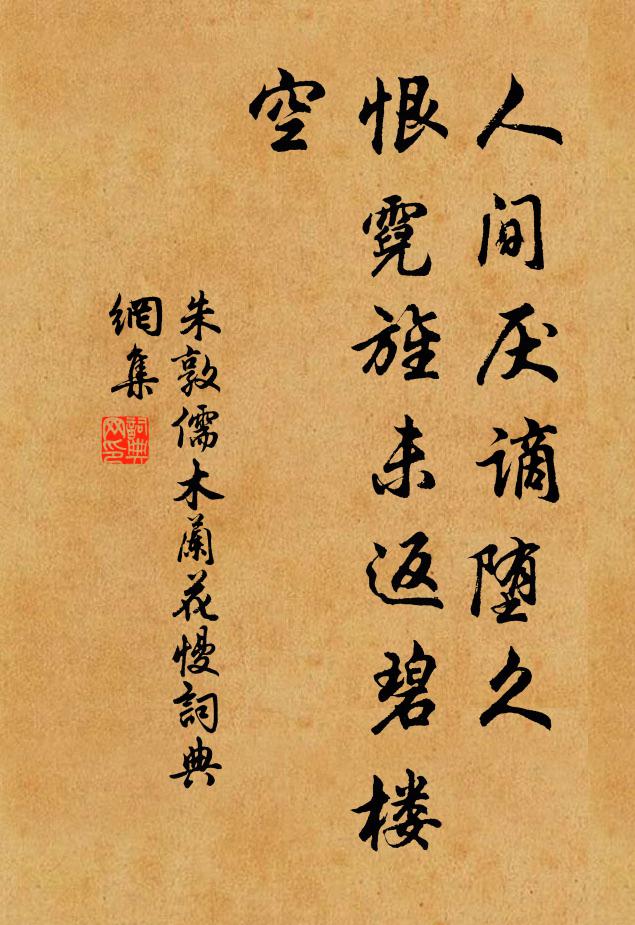 人间厌谪堕久
恨霓旌未返碧楼
空
朱敦儒木蘭花慢詞典
網集
詞典
网印